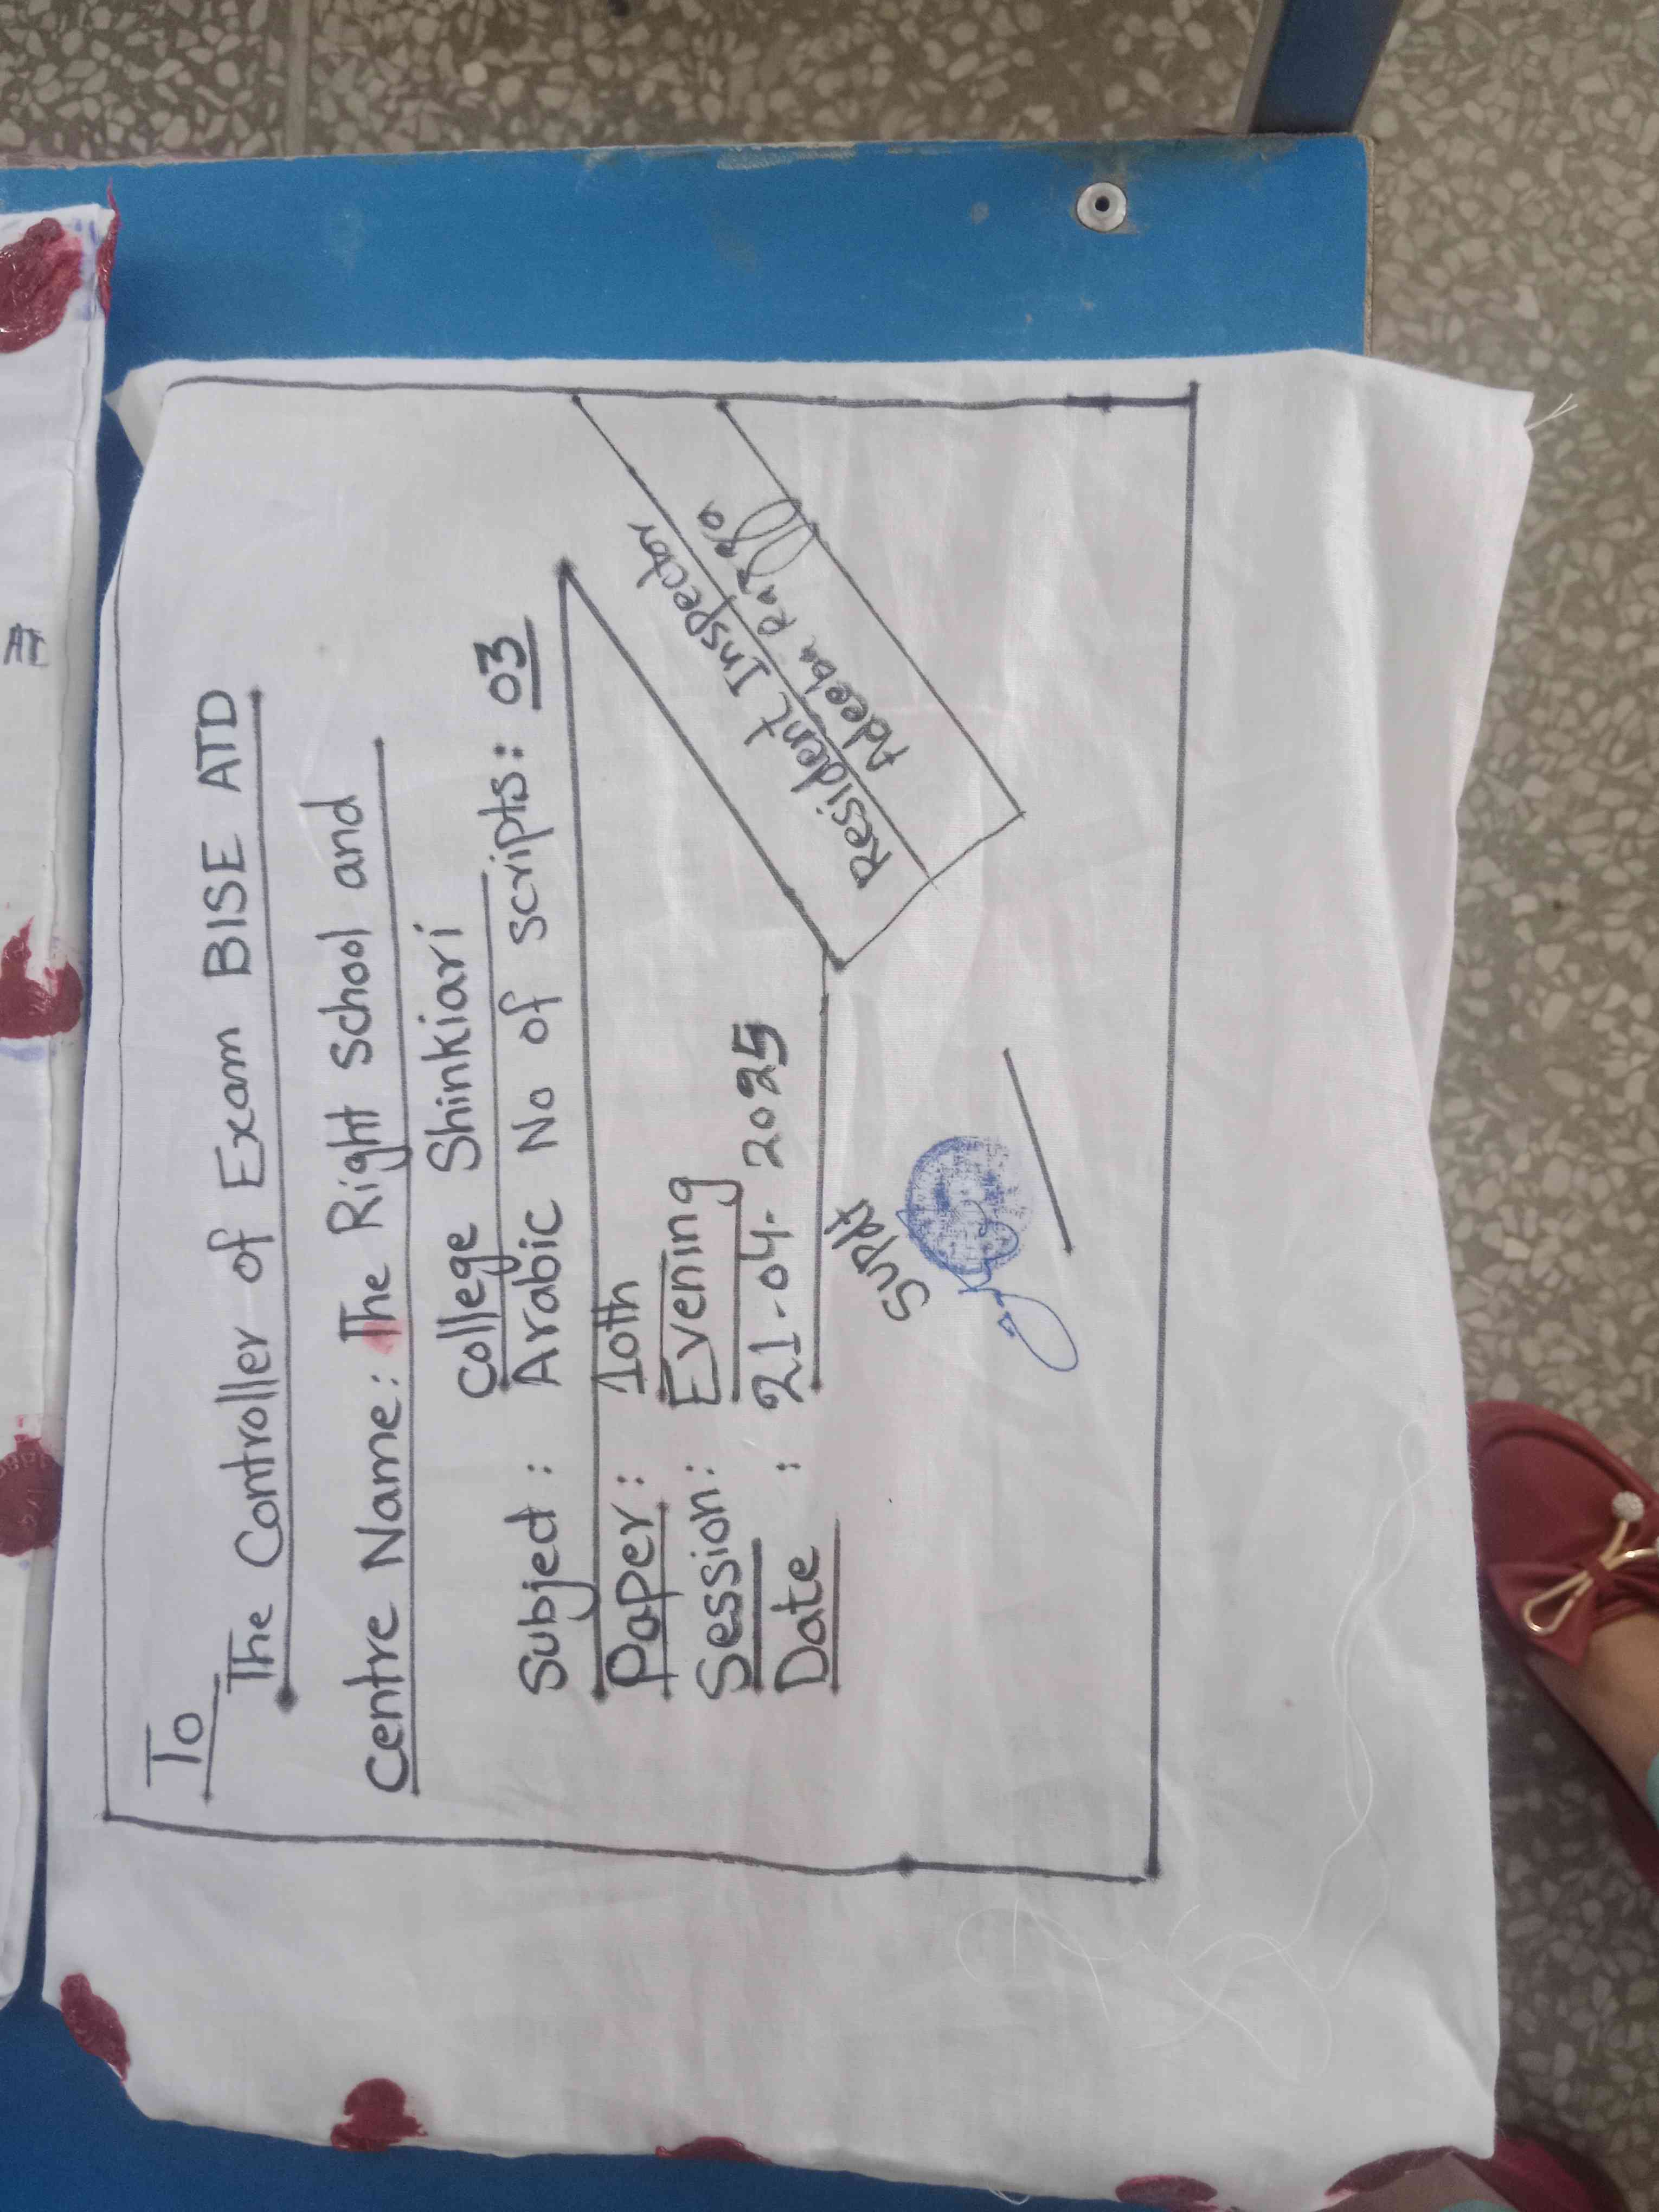 To
The Controller of Exam BISE ATD
Centre Name: The Right School and
College Shinkiari
Subject : Arabic No of scripts: 03
Paper : 10th
Session: Evening
Date : 21-04-2025
Supdt
Resident Inspector
Adeeba